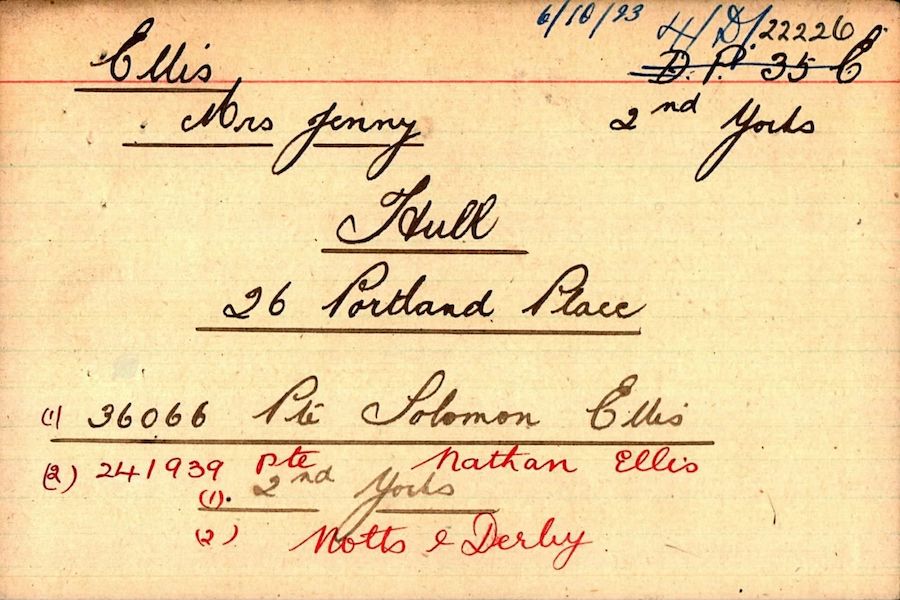 6/10/93 4/D/22226
Ellis D.P. 35 E
Mrs Jenny 2nd Yorks
Hull
26 Portland Place
(1) 36066 Pte Solomon Ellis
(2) 241939 Pte Nathan Ellis
(1). 2nd Yorks
(2) Notts & Derby